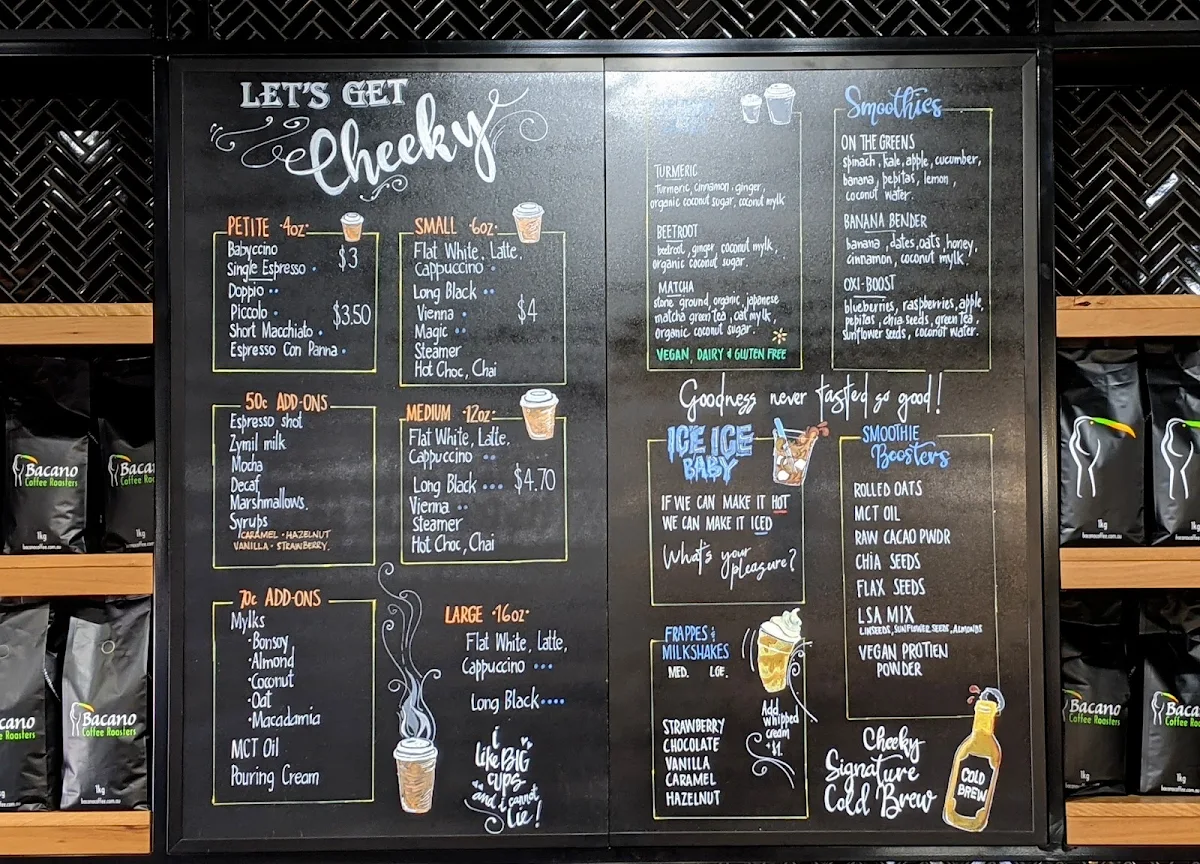 LET'S GET
Cheeky
PETITE ·4oz·
Babyccino
$3
Single Espresso
Doppio
Piccolo
$3.50
Short Macchiato
Espresso Con Panna
SMALL ·6oz·
Flat White, Latte,
Cappuccino
Long Black
Vienna
$4
Magic
Steamer
Hot Choc, Chai
50c ADD-ONS
Espresso shot
Zymil milk
Mocha
Decaf
Marshmallows.
Syrups
CARAMEL · HAZELNUT
VANILLA · STRAWBERRY.
MEDIUM ·12oz·
Flat White, Latte.
Cappuccino
Long Black
$4.70
Vienna
Steamer
Hot Choc, Chai
70c ADD-ONS
Mylks
·Bonsoy
·Almond
·Coconut
·Oat
·Macadamia
MCT Oil
Pouring Cream
LARGE ·16oz·
Flat White, Latte,
Cappuccino
Long Black
i
like BIG
cups
and i cannot
Lie!
TURMERIC
Turmeric, cinnamon, ginger,
organic coconut sugar, coconut mylk
BEETROOT
beetroot, ginger, coconut mylk,
organic coconut sugar.
MATCHA
stone ground, organic, japanese
matcha green tea, oat mylk,
organic coconut sugar.
VEGAN, DAIRY & GLUTEN FREE
Smoothies
ON THE GREENS
spinach, kale, apple, cucumber,
banana, pepitas, lemon,
coconut water.
BANANA BENDER
banana, dates, oats, honey,
cinnamon, coconut mylk
OXI-BOOST
blueberries, raspberries, apple,
pepitas, chia seeds, green tea,
sunflower seeds, coconut water.
Goodness never tasted so good!
ICE ICE
BABY
IF WE CAN MAKE IT HOT
WE CAN MAKE IT ICED
What's your
pleasure?
SMOOTHIE
Boosters
ROLLED OATS
MCT OIL
RAW CACAO PWDR
CHIA SEEDS
FLAX SEEDS
LSA MIX
LINSEEDS, SUNFLOWER SEEDS, ALMONDS
VEGAN PROTIEN
POWDER
FRAPPES &
MILKSHAKES
MED. LGE.
STRAWBERRY
CHOCOLATE
VANILLA
CARAMEL
HAZELNUT
Add
whipped
cream
+$1
Cheeky
Signature
Cold Brew
COLD
BREW
Bacano
Coffee Roasters
1kg
bacanocoffee.com.au
Bacano
Coffee Roasters
1kg
1kg
bacanocoffee.com.au
1kg
Bacano
Coffee Roasters
1kg
Bacano
Coffee Roasters
1kg
bacanocoffee.com.au
Bacano
Coffee Roasters
1kg
Bacano
Coffee Roasters
1kg